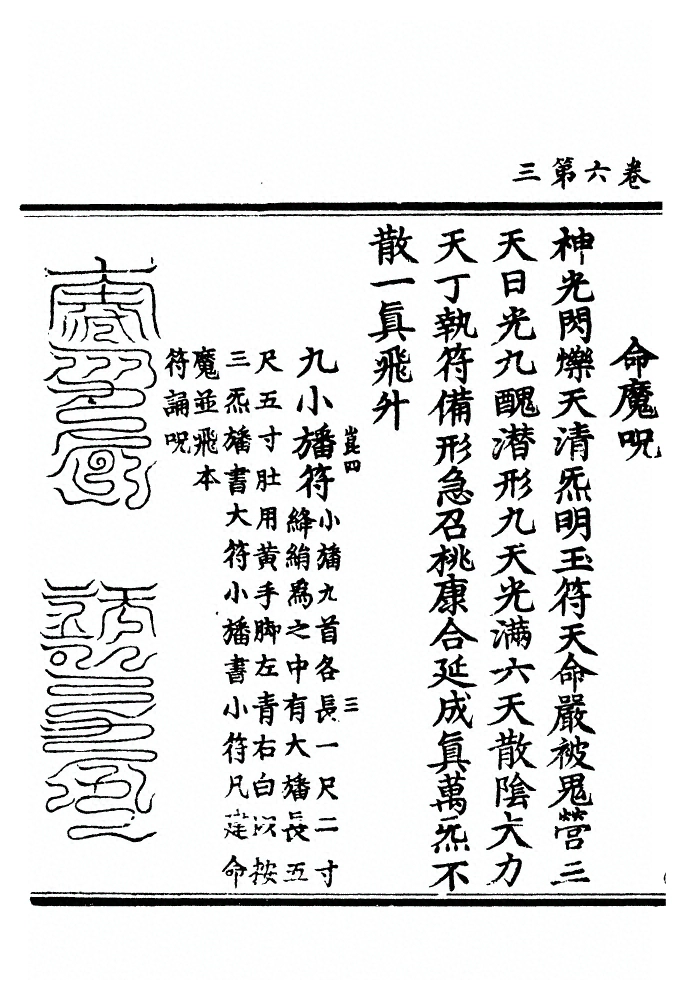 三第六卷
命魔呪
神光閃爍天清炁明玉符天命嚴被鬼營三
天日光九醜潛形九天光滿六天散陰大力
天丁執符備形急召桃康合延成真萬炁不
散一真飛升
九小旛符小旛九首各長一尺二寸
崑四
三
絳絹爲之中有大旛長五
尺五寸肚用黃手脚左青右白以按
三炁旛書大符小旛書小符凡建命
魔並飛本
符誦呪